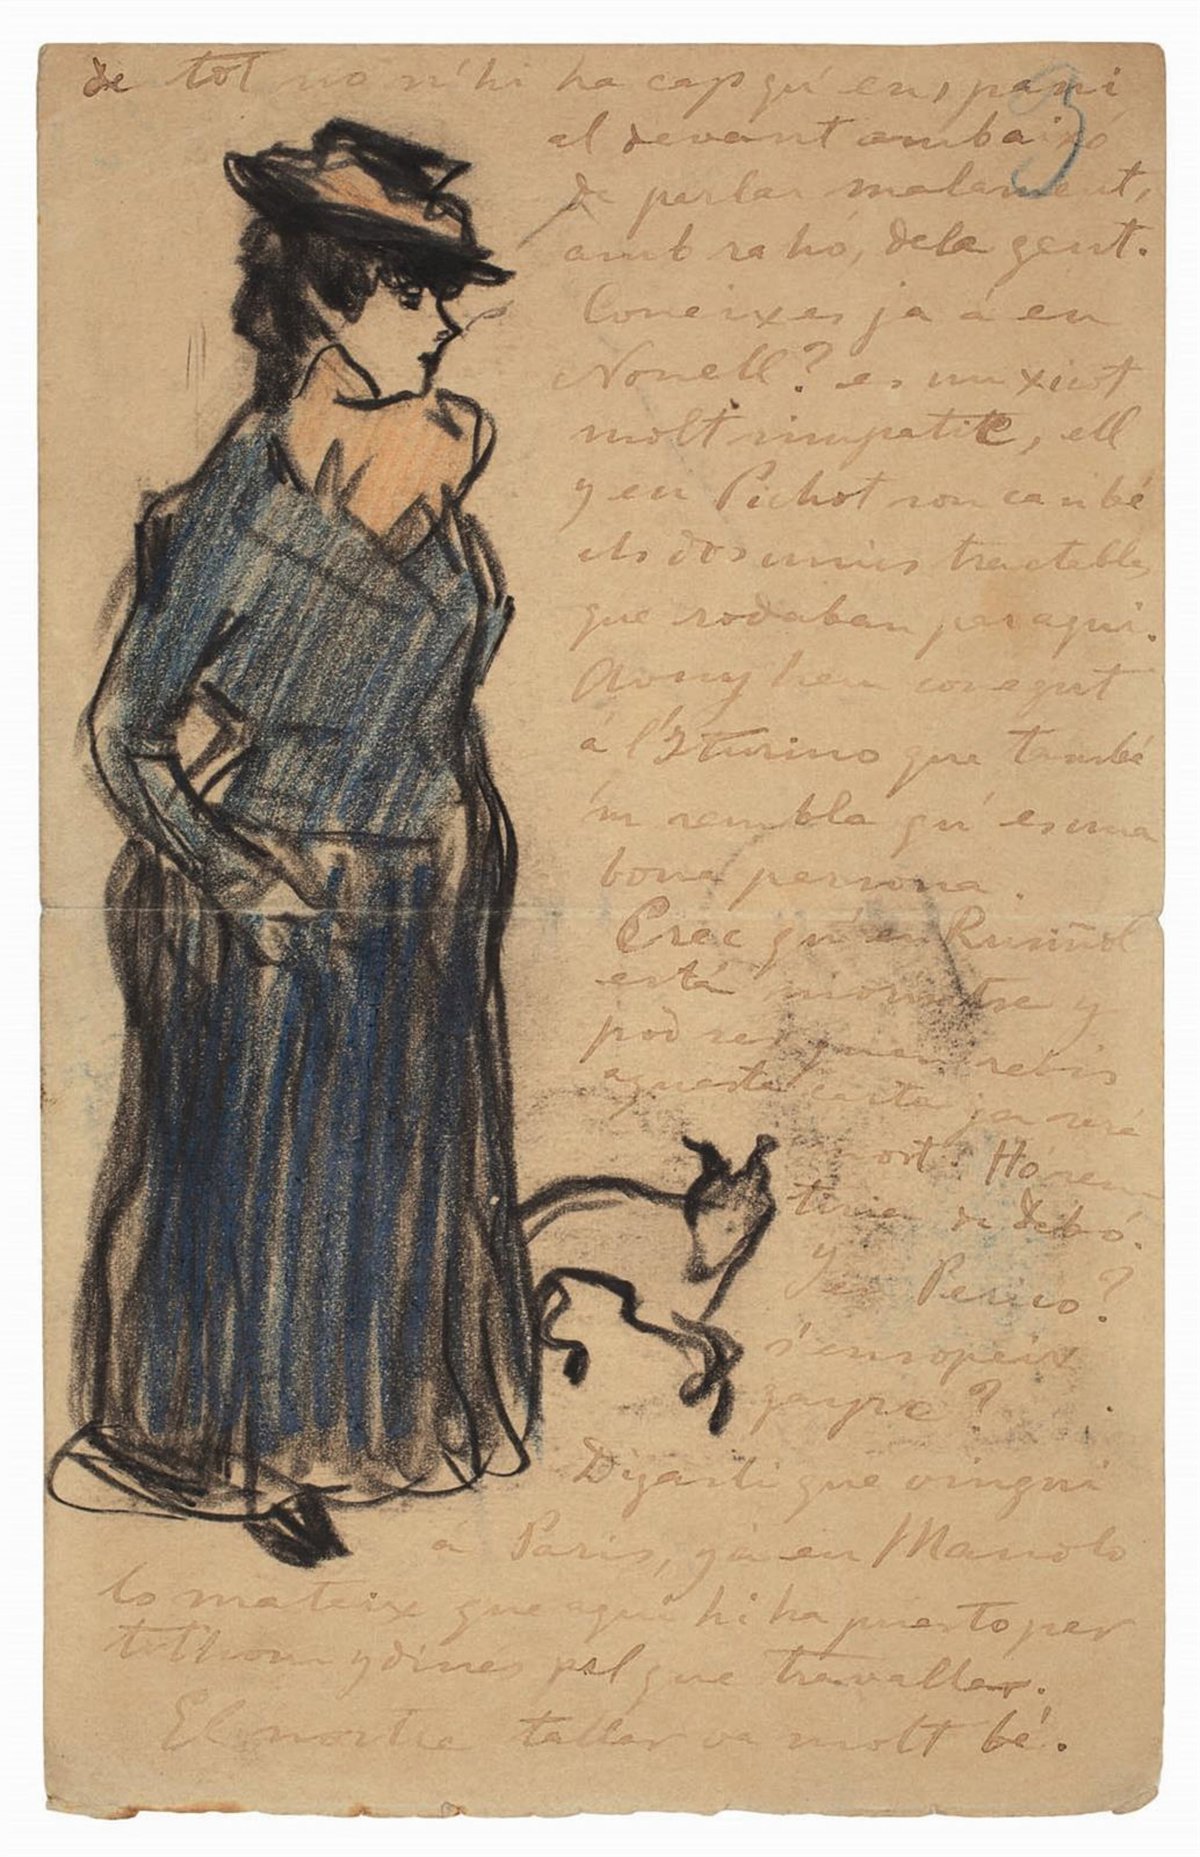 de tot no n'hi ha cap qu'ens pani
3
al devant amb aixó
de parlar malament,
amb rahó, de la gent.
Coneixes ja á en
Nonell? es un xicot
molt simpatic, ell
y en Pichot son can bé
els dos unics tractables
que rodaban per aqui.
Avuy hem conegut
á l'Iturino que també
'm sembla qu'es una
bona persona.
Crec qu'en Rusiñol
está mortse y
podser quan rebis
aquesta carta ja será
mort. Ho
de debó.
Y en Perico?
s'europeix
gayre?
Digasli que vingui
á Paris, y á en Manolo
lo mateix que aqui hi ha puesto per
tothom y dines pel que travalla.
El nostre taller va molt bé.